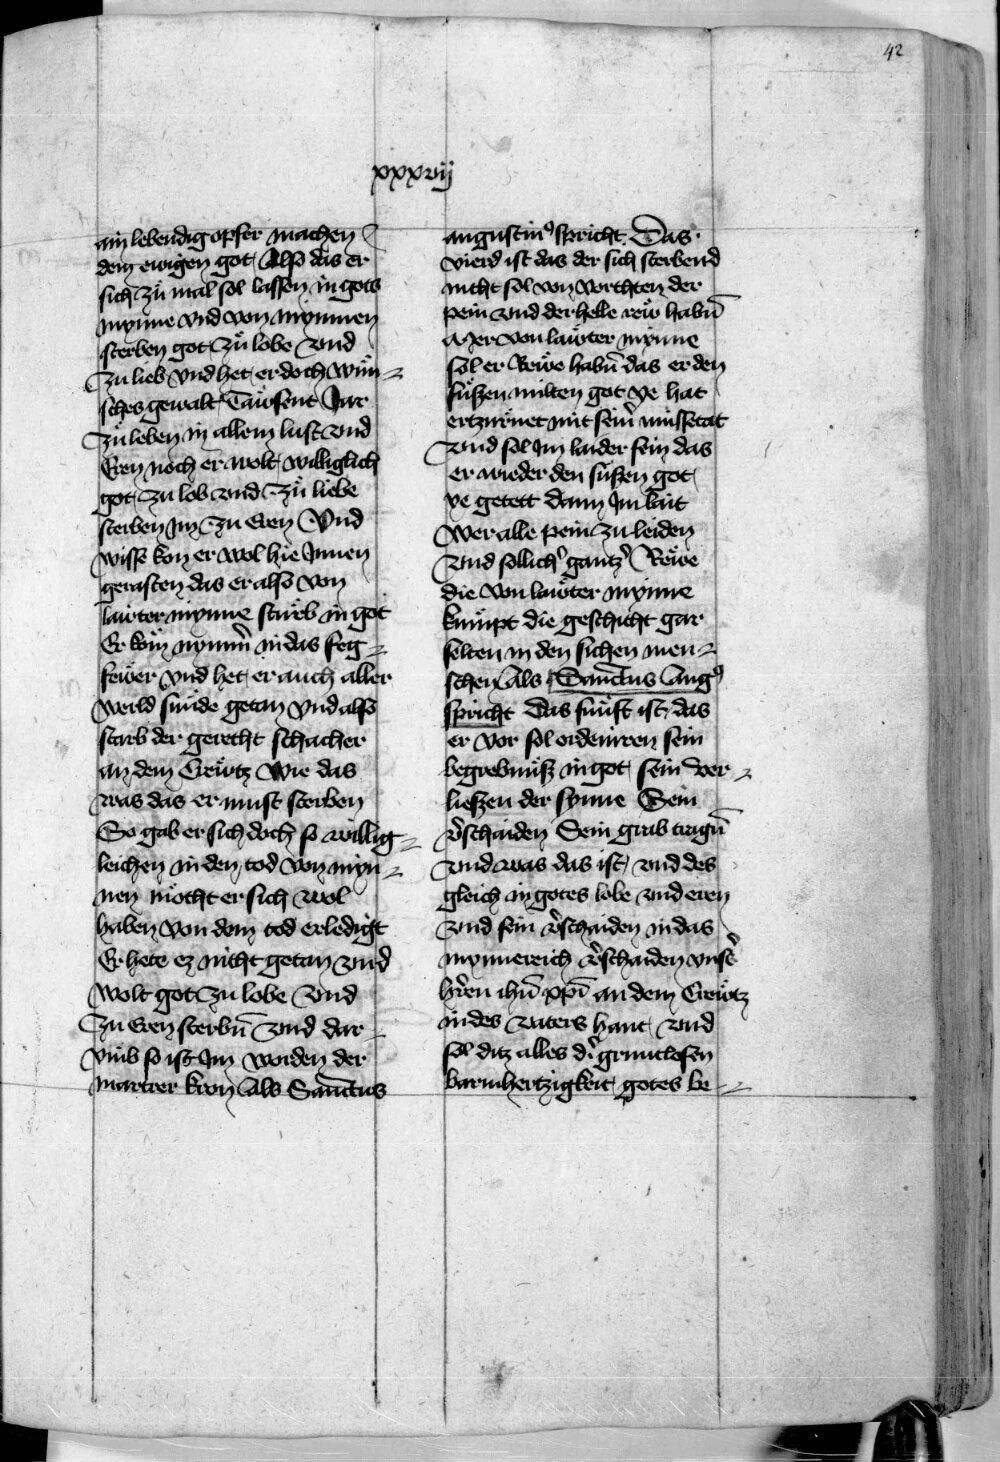 42
xxxvij
ain lebendig opfer machen
dem ewigen got Also das er
sich zů mal sol lassen in gots
mynne vnd von mynnen
sterben got zů lobe vnd
zu lieb vnd het er doch wün=
sches gewalt Tawsent Jar
zů leben in allem lust vnd
Eren noch er wolt williglich
got zu lob vnd zů liebe
sterben Jm zu Eren Vnd
wisse kon er wol hie Jnnen
gerasten das er also von
lawter mynne stürb in got
Er kům nymm̄ in das feg=
fewer vnd het er auch aller
werld sünde getan vnd also
starb der gerecht schacher
an dem Crewtz Wie das
was das er must sterben
So gab er sich doch so willig=
leichen in den tod von myn=
nen möcht er sich wol
haben von dem tod erledigt
Er hete ez nicht getan vnd
wolt got zu lobe vnd
zu Eren sterbn̄ vnd dar=
vmb so ist Jm worden der
martrer kron Als Sanctus
augustin⁹ spricht. Das.
vierd ist das der sich sterbend
nicht sol von vorchten der
pein vnd der helle rew habn̄
Mer von lawter mynne
sol er Rewe habn̄ das er den
süszen milten got ye hat
ertzürnet mit sein̄ missetat
vnd sol Jm laider sein das
er wieder den süszen got
ye getett dann Jm lait
wer alle pein zu leiden
vnd sollich̄ gantz̄ Rewe
die von lawter mynne
kumpt die geschicht gar
selten in den sichen men=
schen Als Sanctus Aug⁹
spricht Das fünft ist das
er vor sol ordeniren sein
begrebnüsz in got sein ver=
lieszen der synne Sein
v̄schaiden Sein grab tragn̄
vnd was das ist vnd des
gleich in gotes lobe vnd eren
vnd sein v̄schaiden in das
mynnereich v̄schaiden vns̄
hr̄en ihū xp̄i an dem Crewtz
in des vaters hant vnd
sol ditz alles d̄ gruntlosen
barmhertzigkeit gotes be=